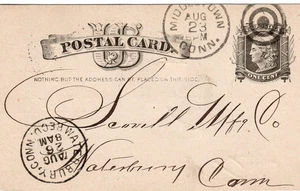 MIDDLETOWN
AUG
23
PM
CONN.
POSTAL CARD.
US
NOTHING BUT THE ADDRESS CAN BE PLACED ON THIS SIDE.
ONE CENT
Scovill Mfg. Co.
Waterbury
Conn
WATERBURY. CONN. REC'D.
AUG
24
8AM